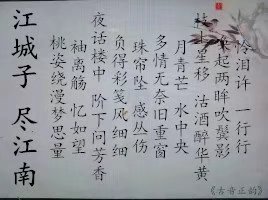 江城子 尽江南
桃姿绕漫梦思量
袖离觞 忆如望
夜话楼中 阶下问芳香
负得彩笺风细细
珠帘坠 感丛伤
多情无奈旧重窗
月青芒 水中央
上星移 沽酒醉华黄
起两眸吹鬓影
泠泪许 一行行
《古音正韵》